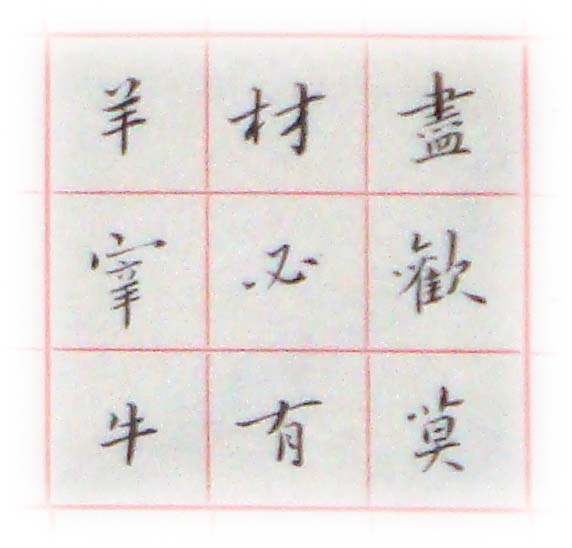 盡歡莫
材必有
羊宰牛